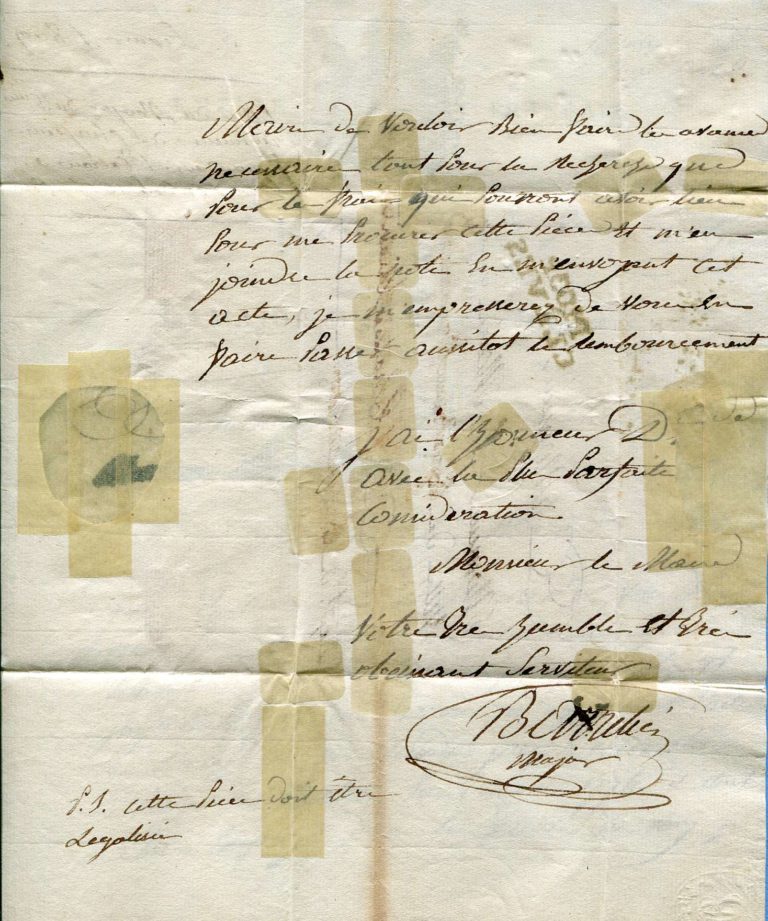 Maire de Vouloir Bien faire les avances
necessaires tout pour la Recherche que
pour les frais qui pourront avoir lieu
pour me procurer cette piece et m'en
joindre la note En m'envoyant cet
acte, je m'empresserez de vous en
faire passer aussitot le Remboursement
j'ai l'honneur D'
avec la plus parfaite
Consideration
Monsieur le Maire
Votre tres humble et tres
obeissant Serviteur
major
P.S. cette piece doit être
Legalisée